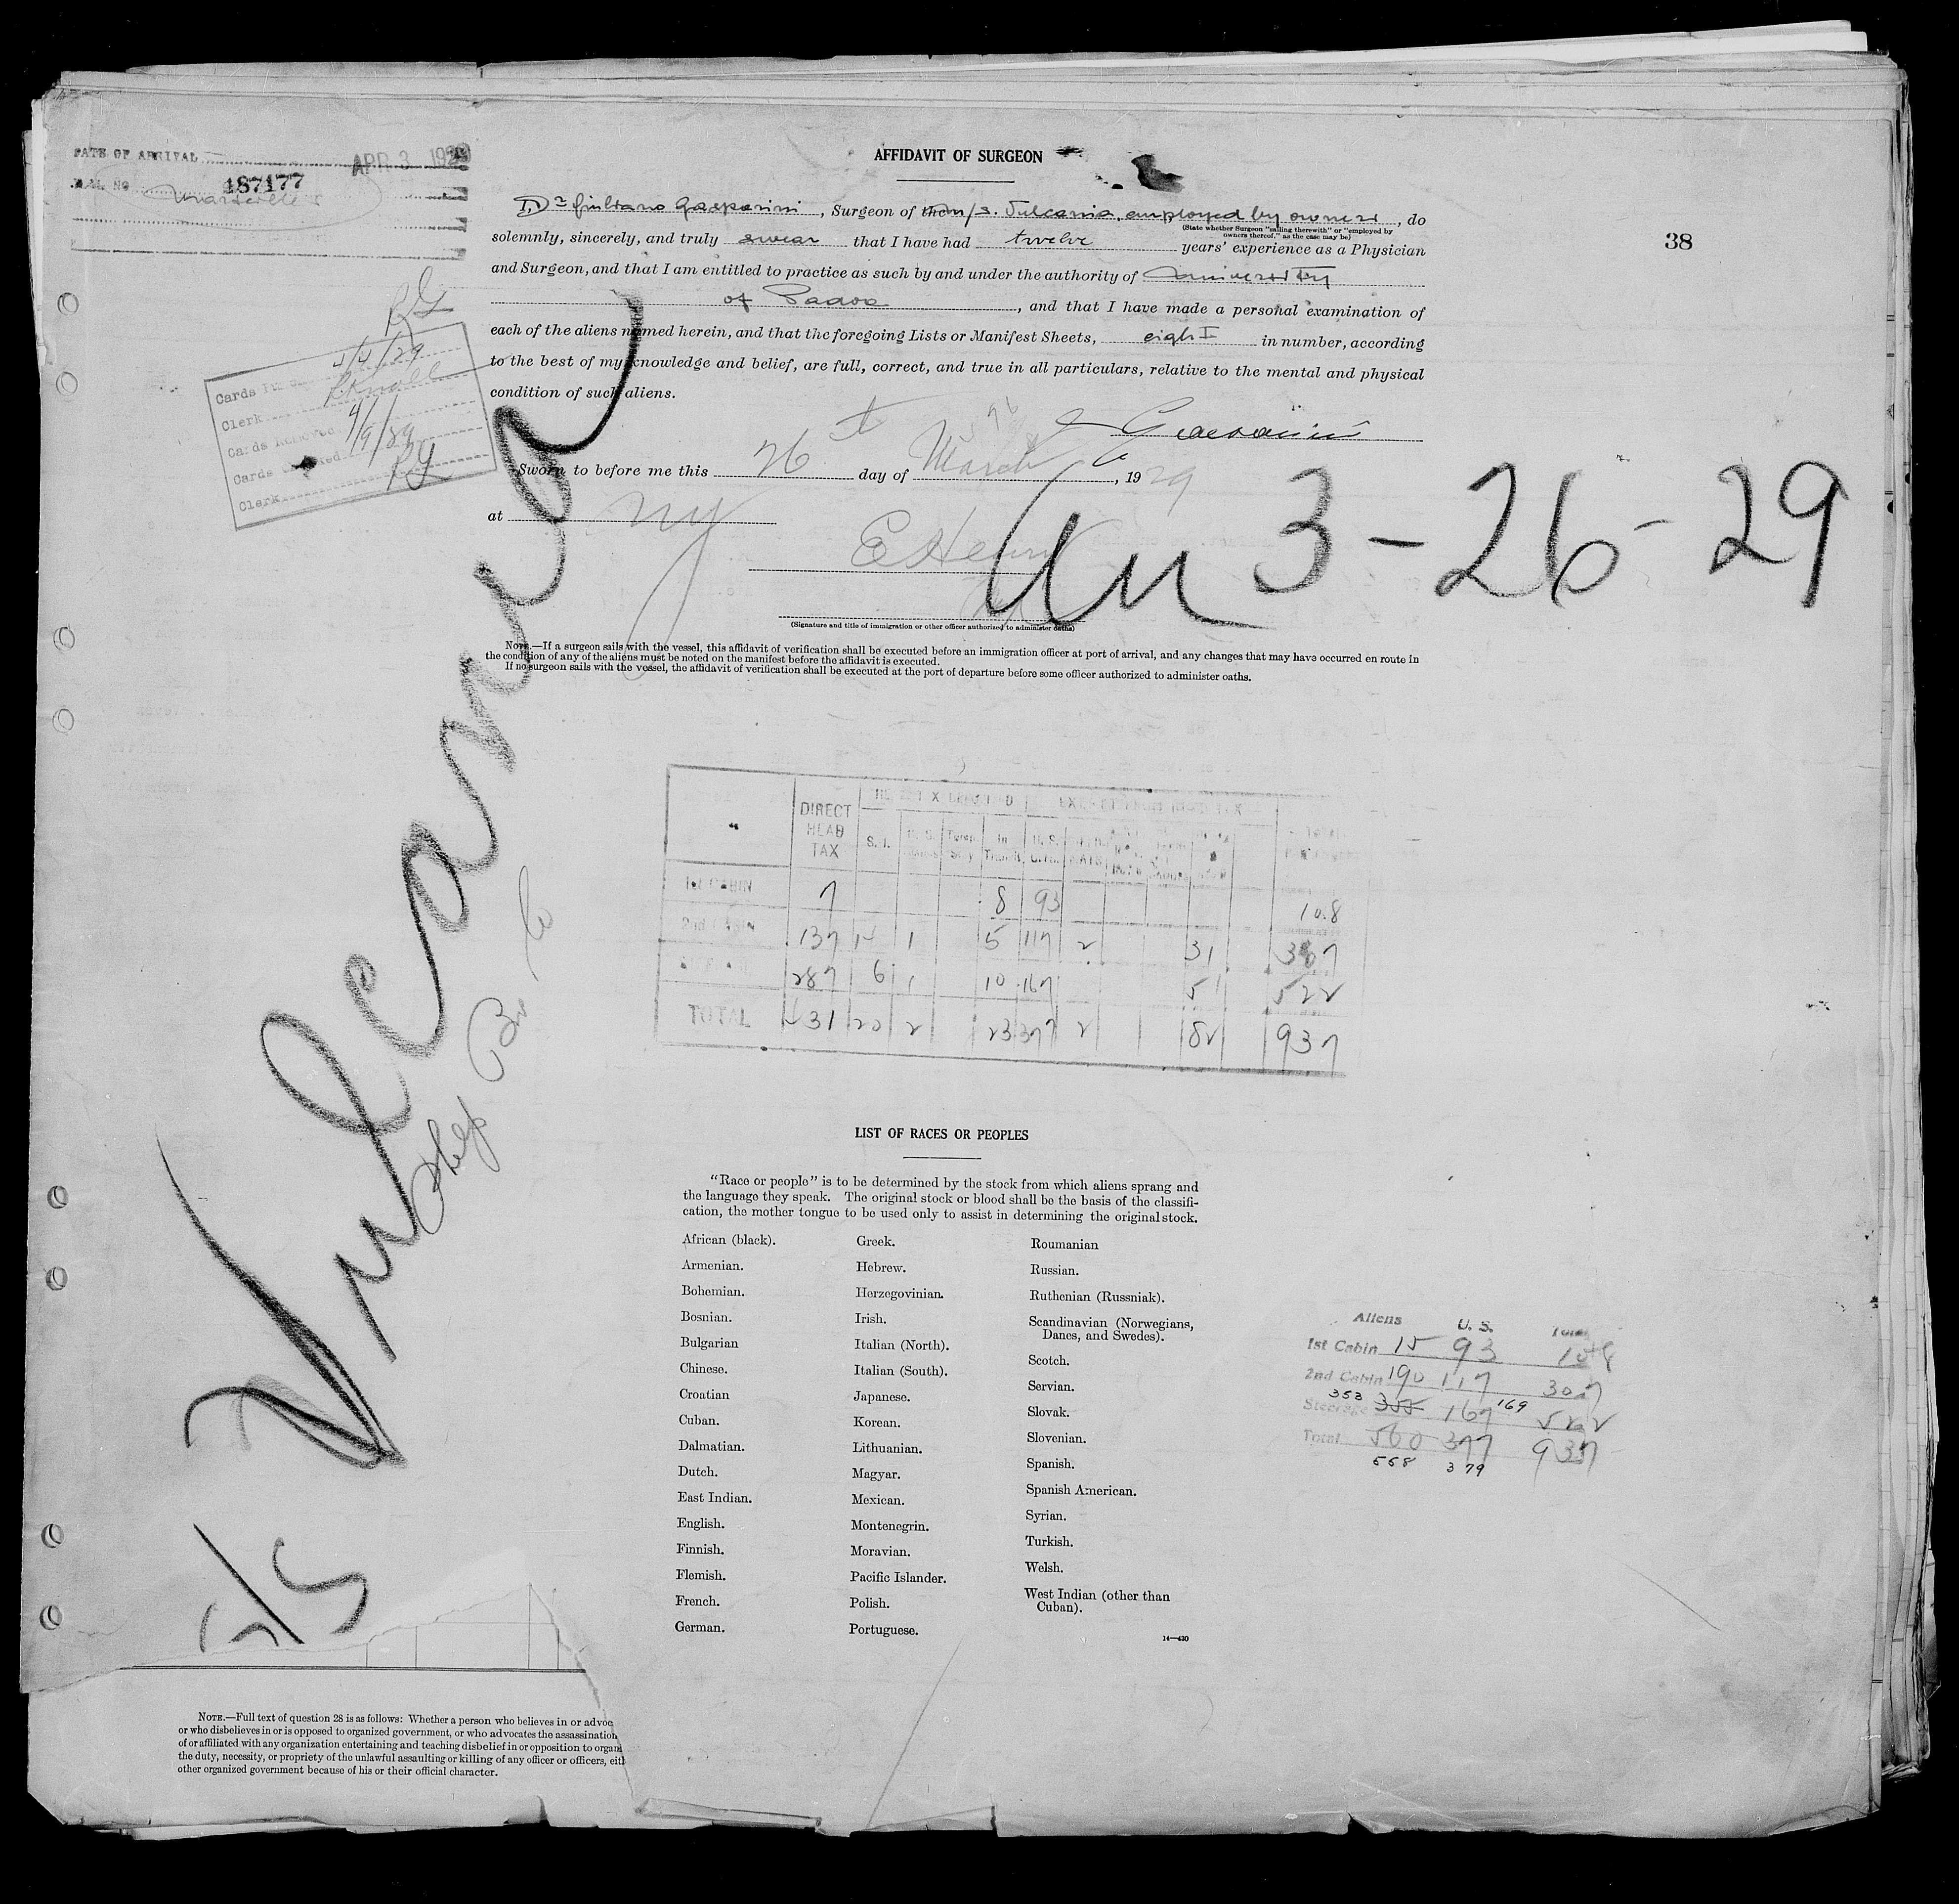 DATE OF ARRIVAL APR 3 1929
187177
AFFIDAVIT OF SURGEON
38
I, Dr Giuliano Gasparini, Surgeon of the m/s. Vulcania, employed by owners, do
(State whether Surgeon "sailing therewith" or "employed by
owners thereof," as the case may be)
solemnly, sincerely, and truly swear that I have had twelve years' experience as a Physician
and Surgeon, and that I am entitled to practice as such by and under the authority of University
of Padoa, and that I have made a personal examination of
each of the aliens named herein, and that the foregoing Lists or Manifest Sheets, eight in number, according
to the best of my knowledge and belief, are full, correct, and true in all particulars, relative to the mental and physical
condition of such aliens.
Gasparini
Sworn to before me this 26 day of March, 1929
at NY
(Signature and title of immigration or other officer authorized to administer oaths)
3-26-29
4/4/29
Clerk
Cards Removed 4/9/89
Cards
Clerk RG
NOTE.—If a surgeon sails with the vessel, this affidavit of verification shall be executed before an immigration officer at port of arrival, and any changes that may have occurred en route in
the condition of any of the aliens must be noted on the manifest before the affidavit is executed.
If no surgeon sails with the vessel, the affidavit of verification shall be executed at the port of departure before some officer authorized to administer oaths.
Vulcania
S/S
DIRECT HEAD TAX S. I. In Transit U. S.
1st CABIN 7 8 93 108
2nd CABIN 137 14 1 5 117 2 31 307
287 6 1 10 167 51 522
TOTAL 431 20 2 23 377 2 82 937
LIST OF RACES OR PEOPLES
"Race or people" is to be determined by the stock from which aliens sprang and
the language they speak. The original stock or blood shall be the basis of the classifi-
cation, the mother tongue to be used only to assist in determining the original stock.
African (black).
Armenian.
Bohemian.
Bosnian.
Bulgarian
Chinese.
Croatian
Cuban.
Dalmatian.
Dutch.
East Indian.
English.
Finnish.
Flemish.
French.
German.
Greek.
Hebrew.
Herzegovinian.
Irish.
Italian (North).
Italian (South).
Japanese.
Korean.
Lithuanian.
Magyar.
Mexican.
Montenegrin.
Moravian.
Pacific Islander.
Polish.
Portuguese.
Roumanian
Russian.
Ruthenian (Russniak).
Scandinavian (Norwegians,
Danes, and Swedes).
Scotch.
Servian.
Slovak.
Slovenian.
Spanish.
Spanish American.
Syrian.
Turkish.
Welsh.
West Indian (other than
Cuban).
14—430
Aliens U. S. Total
1st Cabin 15 93 108
2nd Cabin 190 117 307
353 169
Steerage 355 167 522
Total 560 377 937
558 379
NOTE.—Full text of question 28 is as follows: Whether a person who believes in or advoc
or who disbelieves in or is opposed to organized government, or who advocates the assassination
of or affiliated with any organization entertaining and teaching disbelief in or opposition to organi
the duty, necessity, or propriety of the unlawful assaulting or killing of any officer or officers, eith
other organized government because of his or their official character.